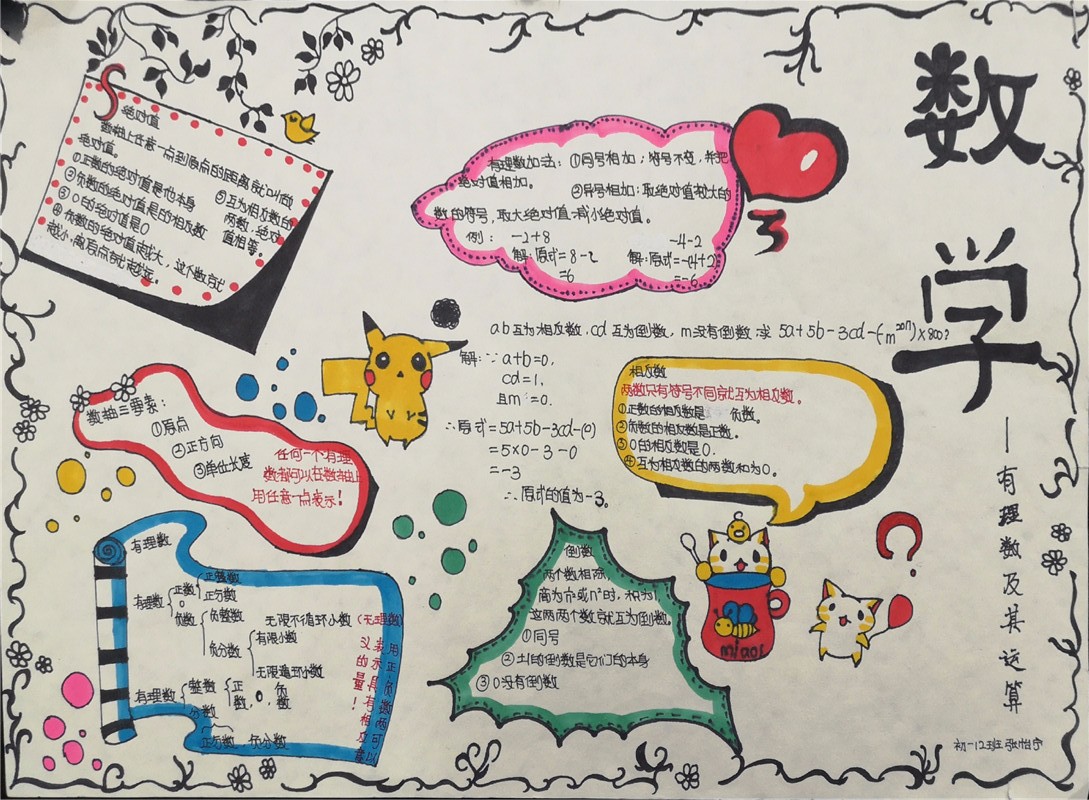 数学
——有理数及其运算
绝对值
数轴上任意一点到原点的距离就叫做
绝对值。
①正数的绝对值是他本身
②负数的绝对值是的相反数
③0的绝对值是0
④负数的绝对值越大，这个数就
越小，离原点就越远。
⑤互为相反数的
两数，绝对
值相等。
有理数加法：①同号相加；符号不变，并把
绝对值相加。 ②异号相加：取绝对值较大的
数的符号，取大绝对值-减小绝对值。
例： -2+8
解：原式=8-2
=6
-4-2
解：原式=-4+2
=-6
ab互为相反数，cd互为倒数，m没有倒数，求 5a+5b-3cd-(m²⁰¹⁷)×800？
解：∵a+b=0，
cd=1，
且m=0。
∴原式=5a+5b-3cd-(0)
=5×0-3-0
=-3
∴原式的值为-3。
相反数
两数只有符号不同就互为相反数。
①正数的相反数是 负数。
②负数的相反数是正数。
③0的相反数是0.
④互为相反数的两数和为0。
数轴三要素：
①原点
②正方向
③单位长度
任何一个有理
数都可以在数轴上
用任意一点表示！
有理数
有理数
正数
0
负数
正整数
正分数
负整数
负分数
无限不循环小数（无理数）
有限小数
无限循环小数
有理数
整数
分数
正数
0
负数
正分数，负分数
用正、负数可以
表示具有相
义的量！
倒数
两个数相除，
这两个数就互为倒数。
①同号
②±1的倒数是它们的本身
③0没有倒数
miaos
初一12班 张怡宁